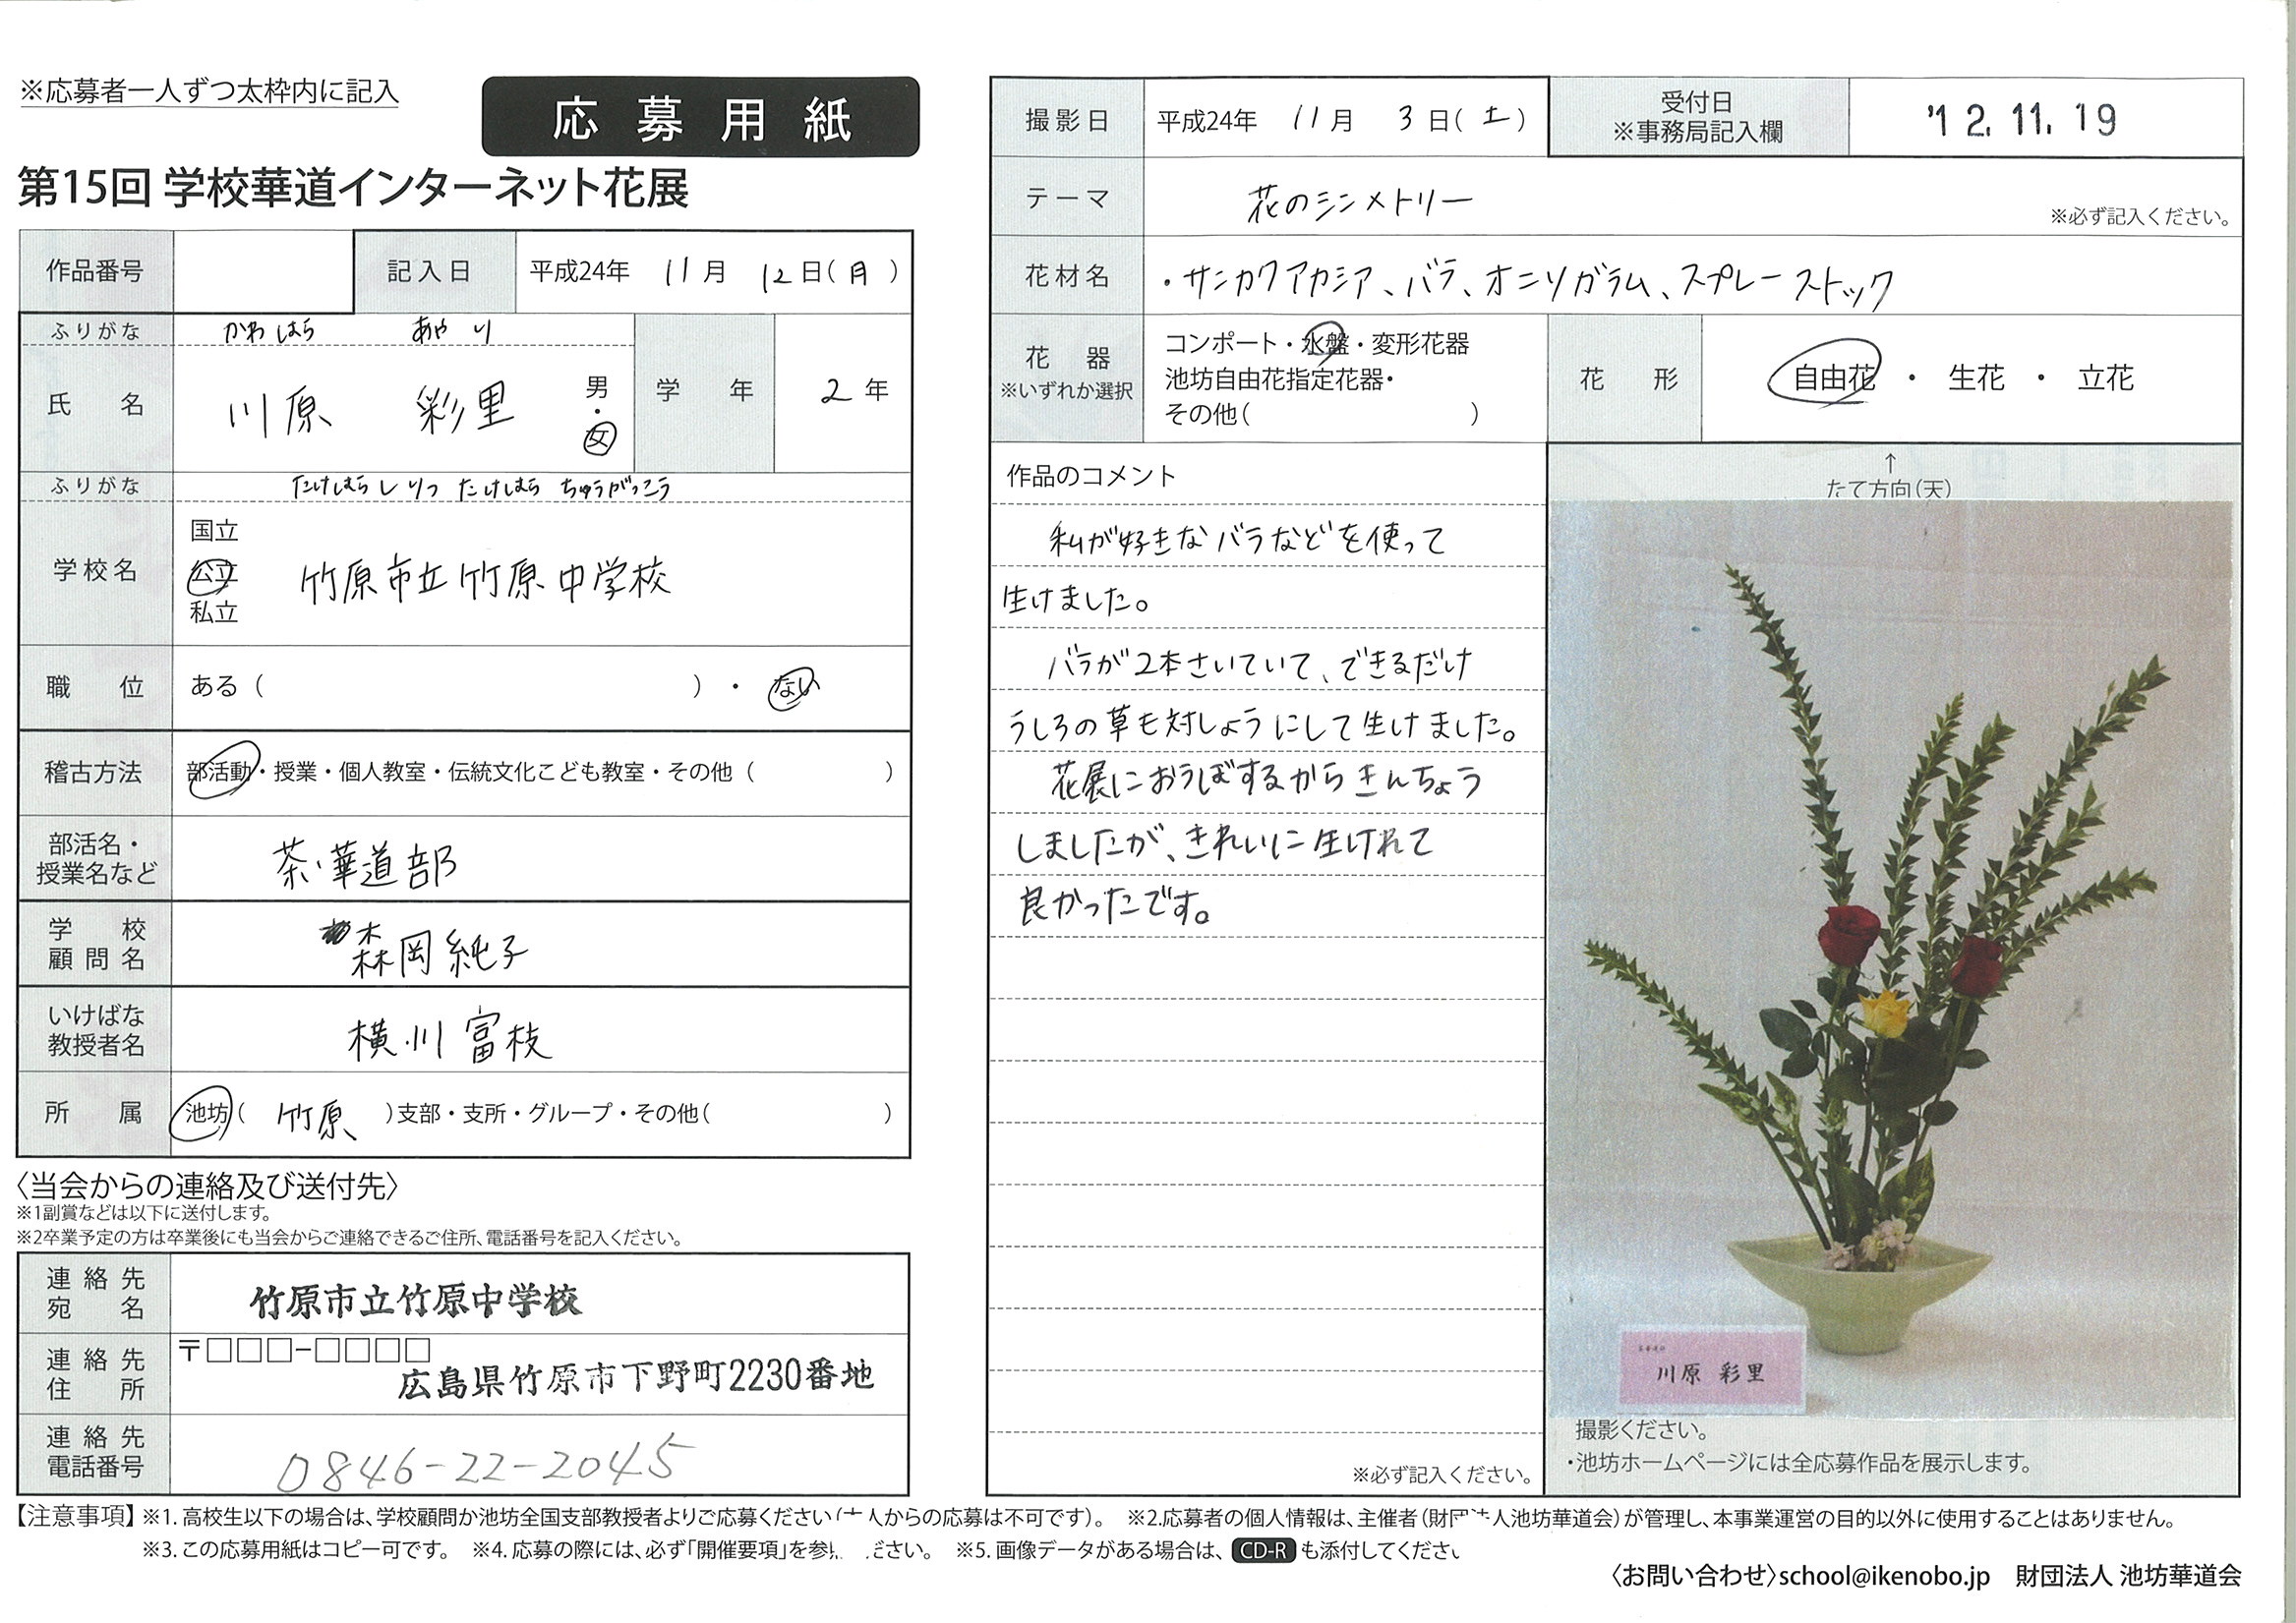 ※応募者一人ずつ太枠内に記入
応募用紙
第15回 学校華道インターネット花展
作品番号
記入日 平成24年 11月 12日(月)
ふりがな かわはら あやり
氏名 川原 彩里 男・女
学年 2年
ふりがな たけはらしりつ たけはら ちゅうがっこう
学校名 国立 公立 私立 竹原市立竹原中学校
職位 ある( )・ない
稽古方法 部活動・授業・個人教室・伝統文化こども教室・その他( )
部活名・授業名など 茶・華道部
学校顧問名 森岡純子
いけばな教授者名 横川富枝
所属 池坊( 竹原 )支部・支所・グループ・その他( )
〈当会からの連絡及び送付先〉
※1副賞などは以下に送付します。
※2卒業予定の方は卒業後にも当会からご連絡できるご住所、電話番号を記入ください。
連絡先宛名 竹原市立竹原中学校
連絡先住所 〒□□□-□□□□
広島県竹原市下野町2230番地
連絡先電話番号 0846-22-2045
撮影日 平成24年 11月 3日(土)
受付日 ※事務局記入欄 '12.11.19
テーマ 花のシンメトリー ※必ず記入ください。
花材名 ・サンカクアカシア、バラ、オニソガラム、スプレーストック
花器 ※いずれか選択
コンポート・水盤・変形花器
池坊自由花指定花器・
その他( )
花形 自由花・生花・立花
作品のコメント
私が好きなバラなどを使って
生けました。
バラが2本さいていて、できるだけ
うしろの草も対しょうにして生けました。
花展におうぼするからきんちょう
しましたが、きれいに生けれて
良かったです。
※必ず記入ください。
↑
たて方向(天)
川原 彩里
撮影ください。
・池坊ホームページには全応募作品を展示します。
【注意事項】※1.高校生以下の場合は、学校顧問か池坊全国支部教授者よりご応募ください( 人からの応募は不可です)。 ※2.応募者の個人情報は、主催者(財団法人池坊華道会)が管理し、本事業運営の目的以外に使用することはありません。
※3.この応募用紙はコピー可です。 ※4.応募の際には、必ず「開催要項」を参 ださい。 ※5.画像データがある場合は、CD-Rも添付してください
〈お問い合わせ〉school@ikenobo.jp 財団法人 池坊華道会